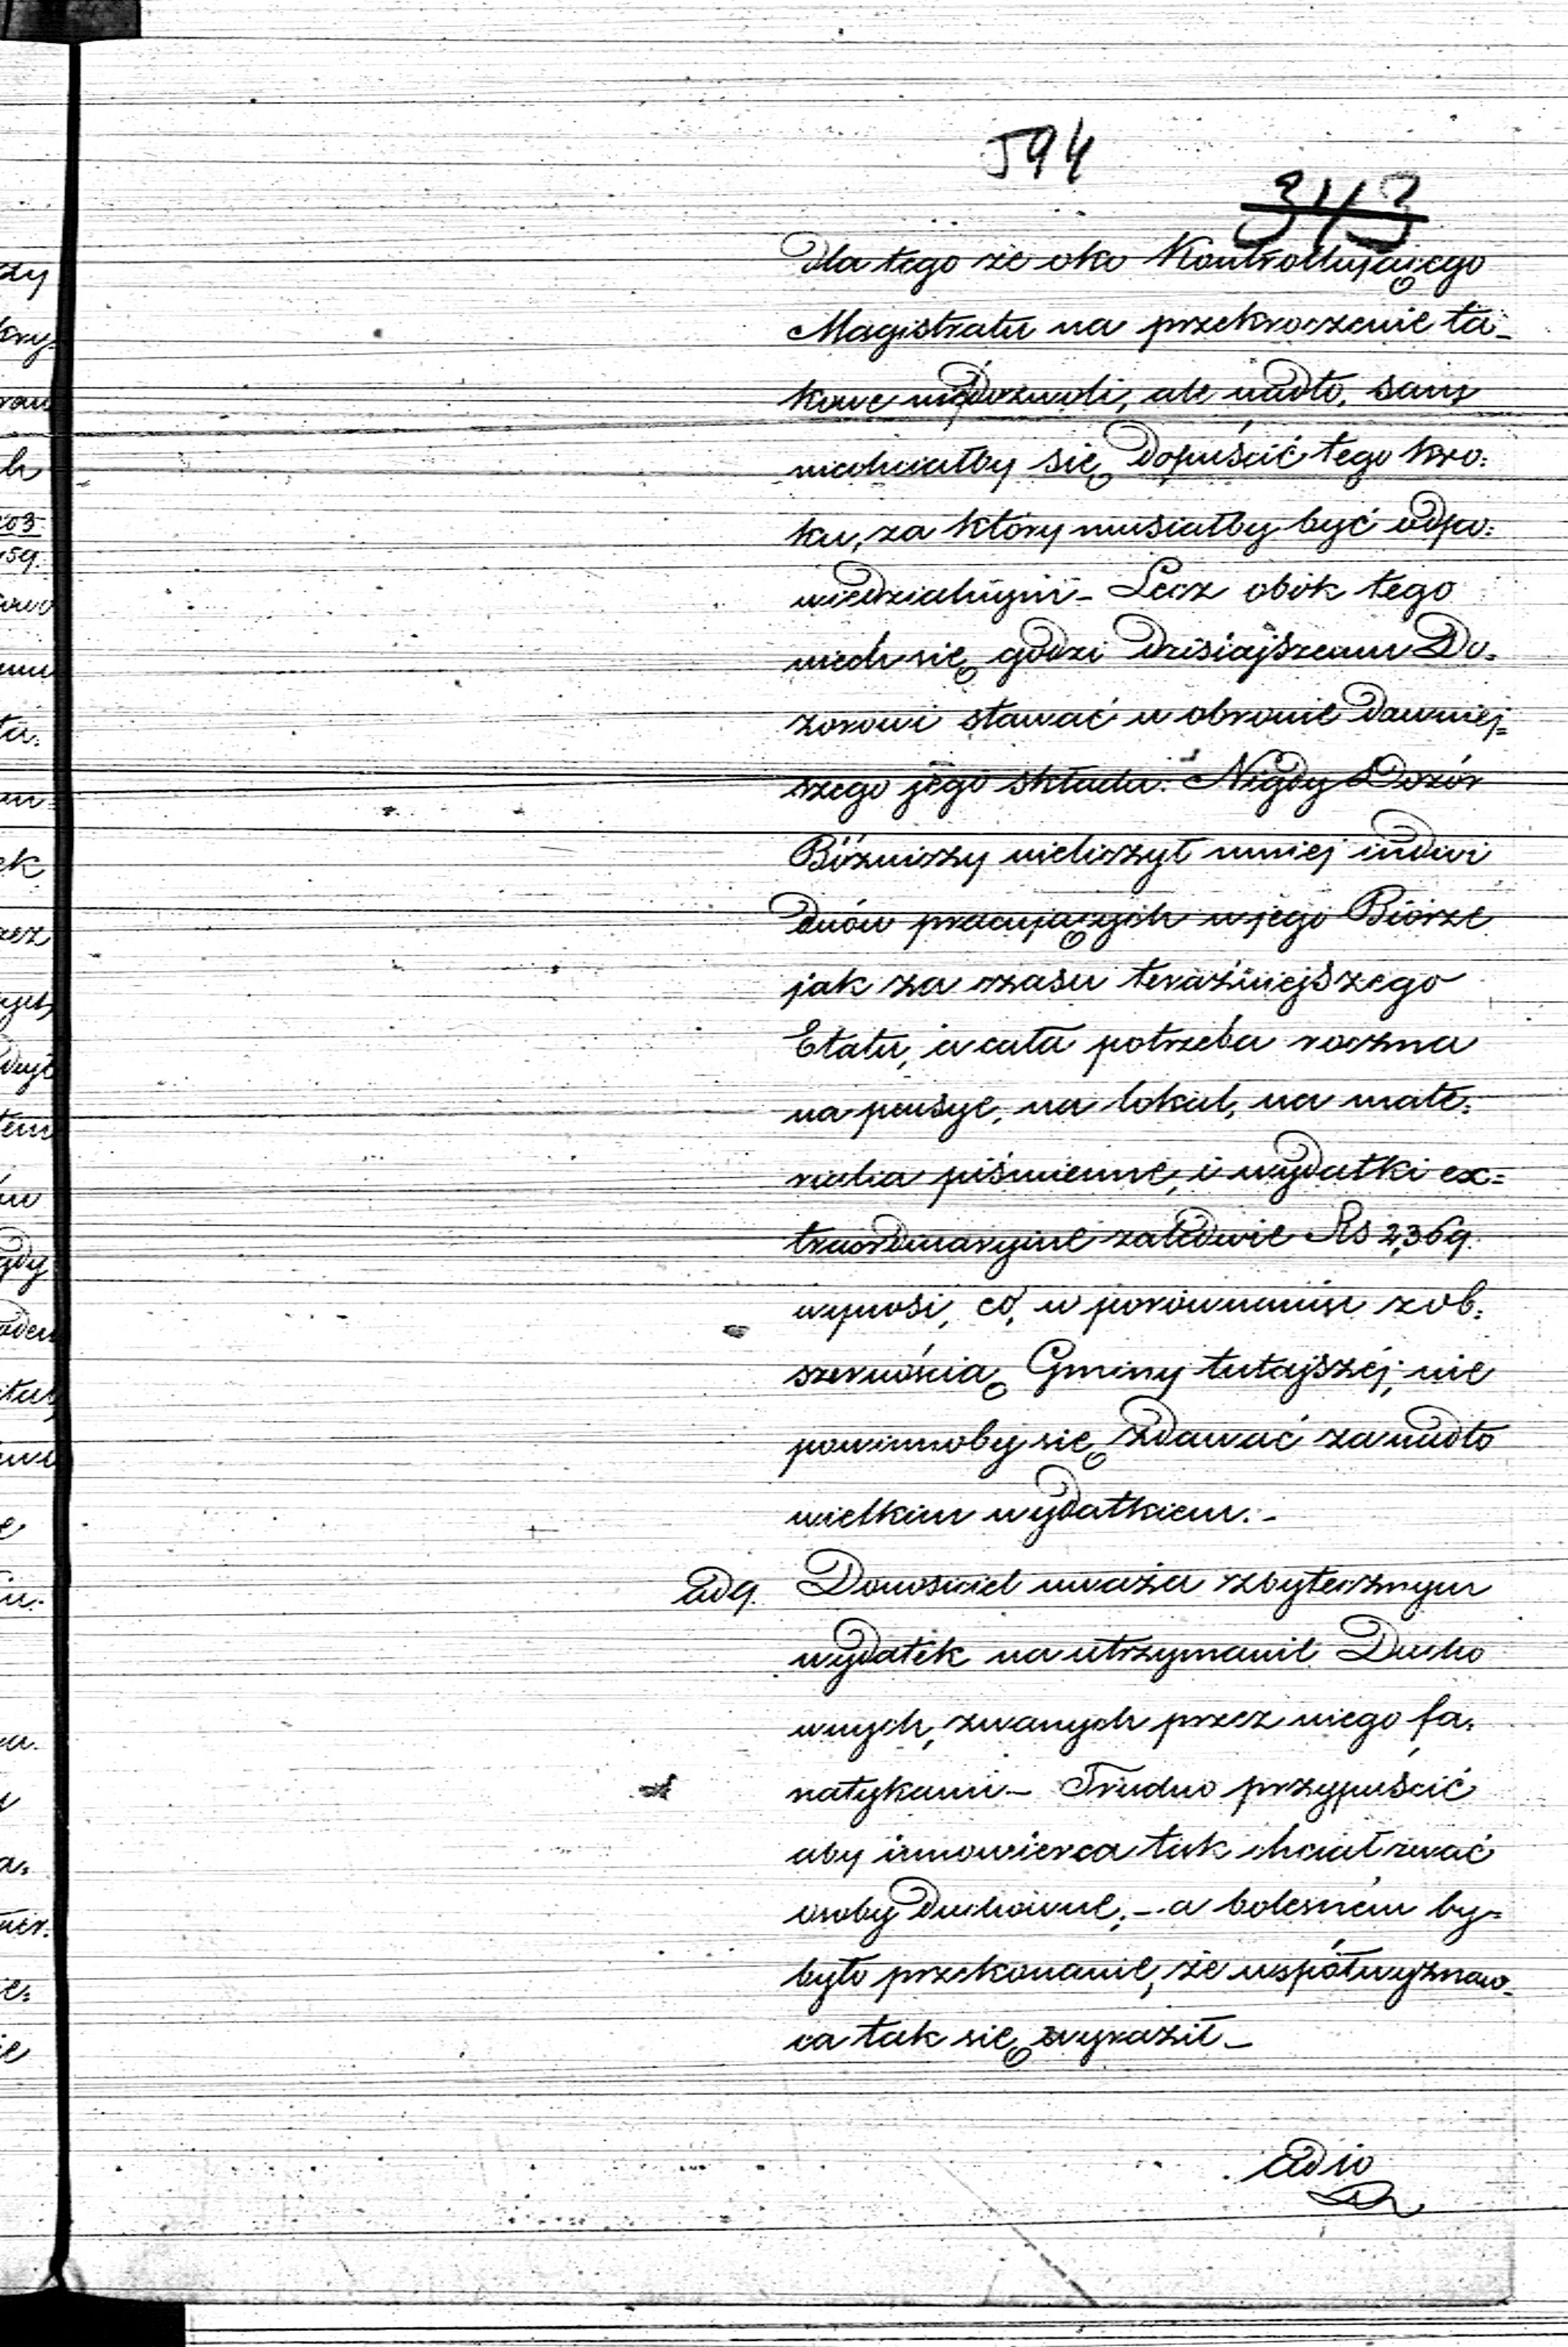 594
343
dla tego że oko Kontrollującego
Magistratu na przekroczenie ta-
kowe niedozwoli, ale nadto, sam
niechciałby się dopuścić tego kro:
ku, za który musiałby być odpo:
wiedzialnym - Lecz obok tego
niech się godzi dzisiajszemu Do:
zorowi stawać w obronie dawniej=
szego jego składu. Nigdy Dozór
Bóżniczy nieliczył mniej indiwi
duów pracujących w jego Biórze
jak za czasu teraźniejszego
Etatu, a cała potrzeba roczna
na pensye, na lokal, na mate:
rialia piśmienne, i wydatki ex=
traordinaryine zaledwie Rs 2,369.
wynosi, co, w porównaniu z ob:
szernością Gminy tutajszéj, nie
powinnoby się zdawać za nadto
wielkim wydatkiem. -
ad 9. Donosiciel uważa zbytecznym
wydatek na utrzymanie Ducho
wnych, zwanych przez niego fa:
natykami - Trudno przypuścić
aby innowierca tak chciał zwać
osoby duchowne, - a bolesném by=
było przekonanie, że współwyznaw-
ca tak się wyraził -
ad 10